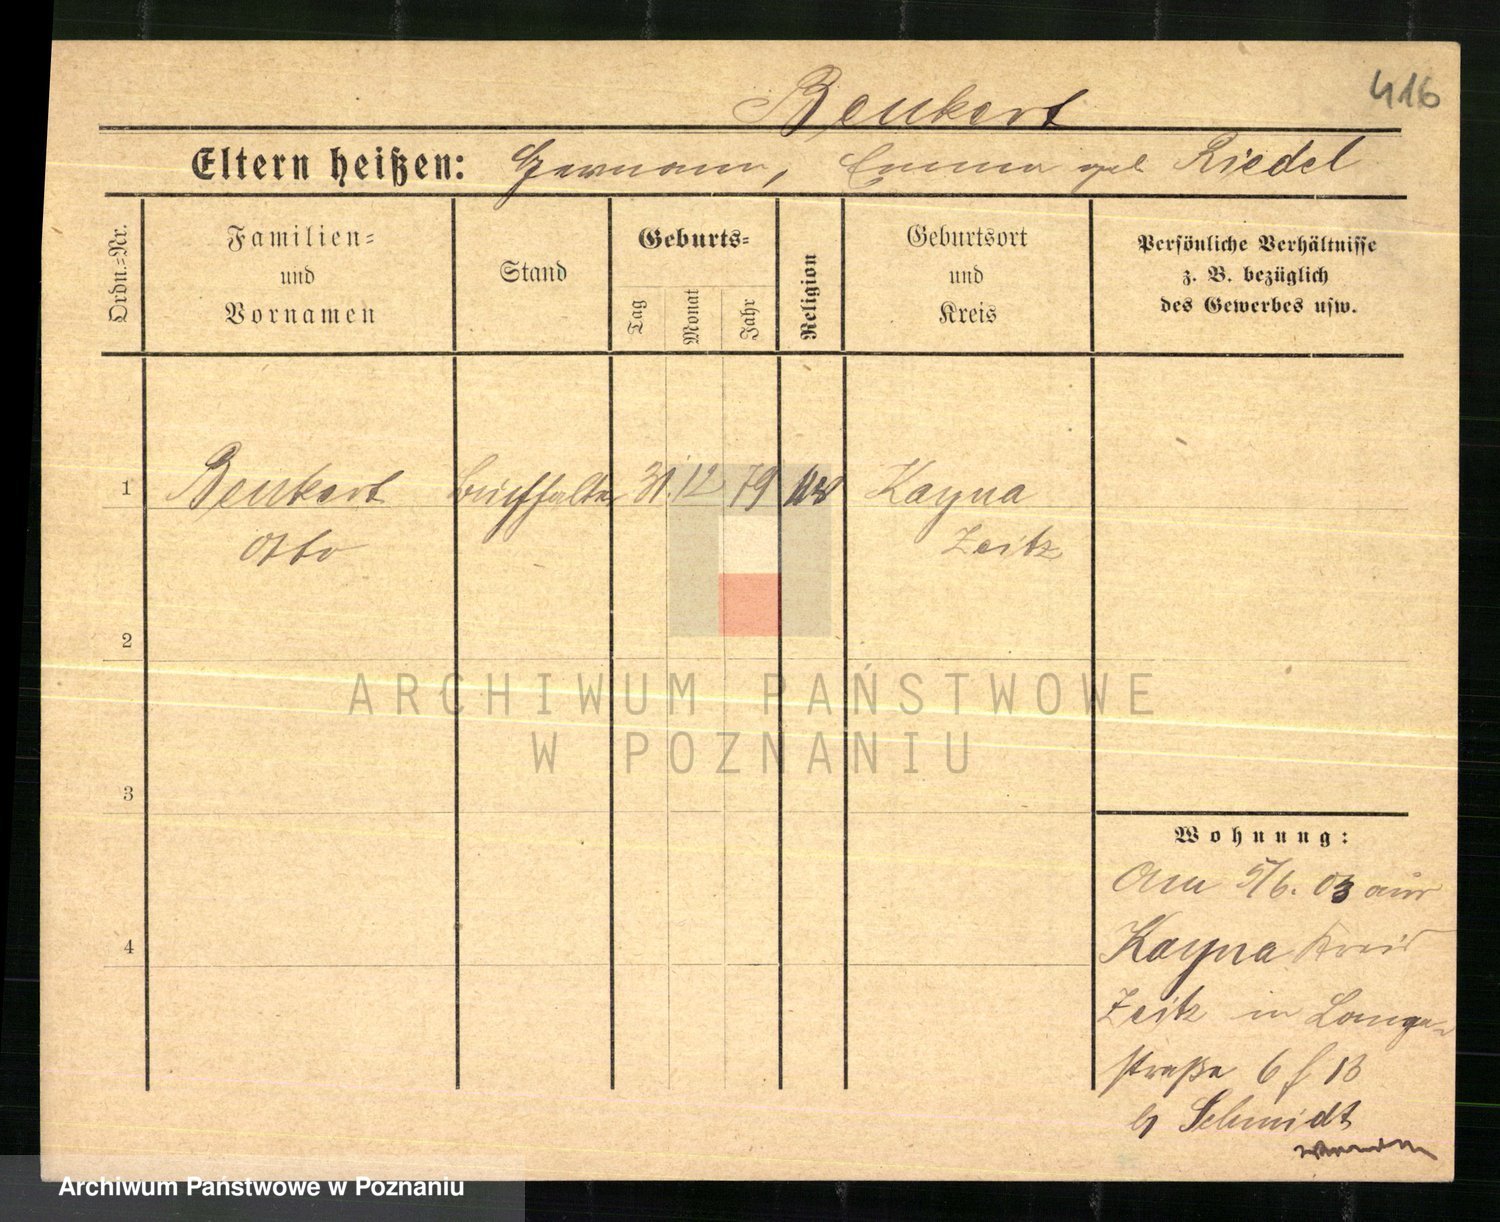 416
Benkert
Eltern heißen: Hermann, Emma geb Riedel
Ordn.-Nr.
Familien-
und
Vornamen
Stand
Geburts-
Tag
Monat
Jahr
Religion
Geburtsort
und
Kreis
Persönliche Verhältnisse
z. B. bezüglich
des Gewerbes usw.
1 Benkert Buchhalter 31. 12 79 Kayna
Otto Zeitz
2
ARCHIWUM PAŃSTWOWE
W POZNANIU
3
4
Wohnung:
Am 5/6. 03 aus
Kayna Kreis
Zeitz in Lange-
straße 6 f 13
b Schmidt
wenden
Archiwum Państwowe w Poznaniu